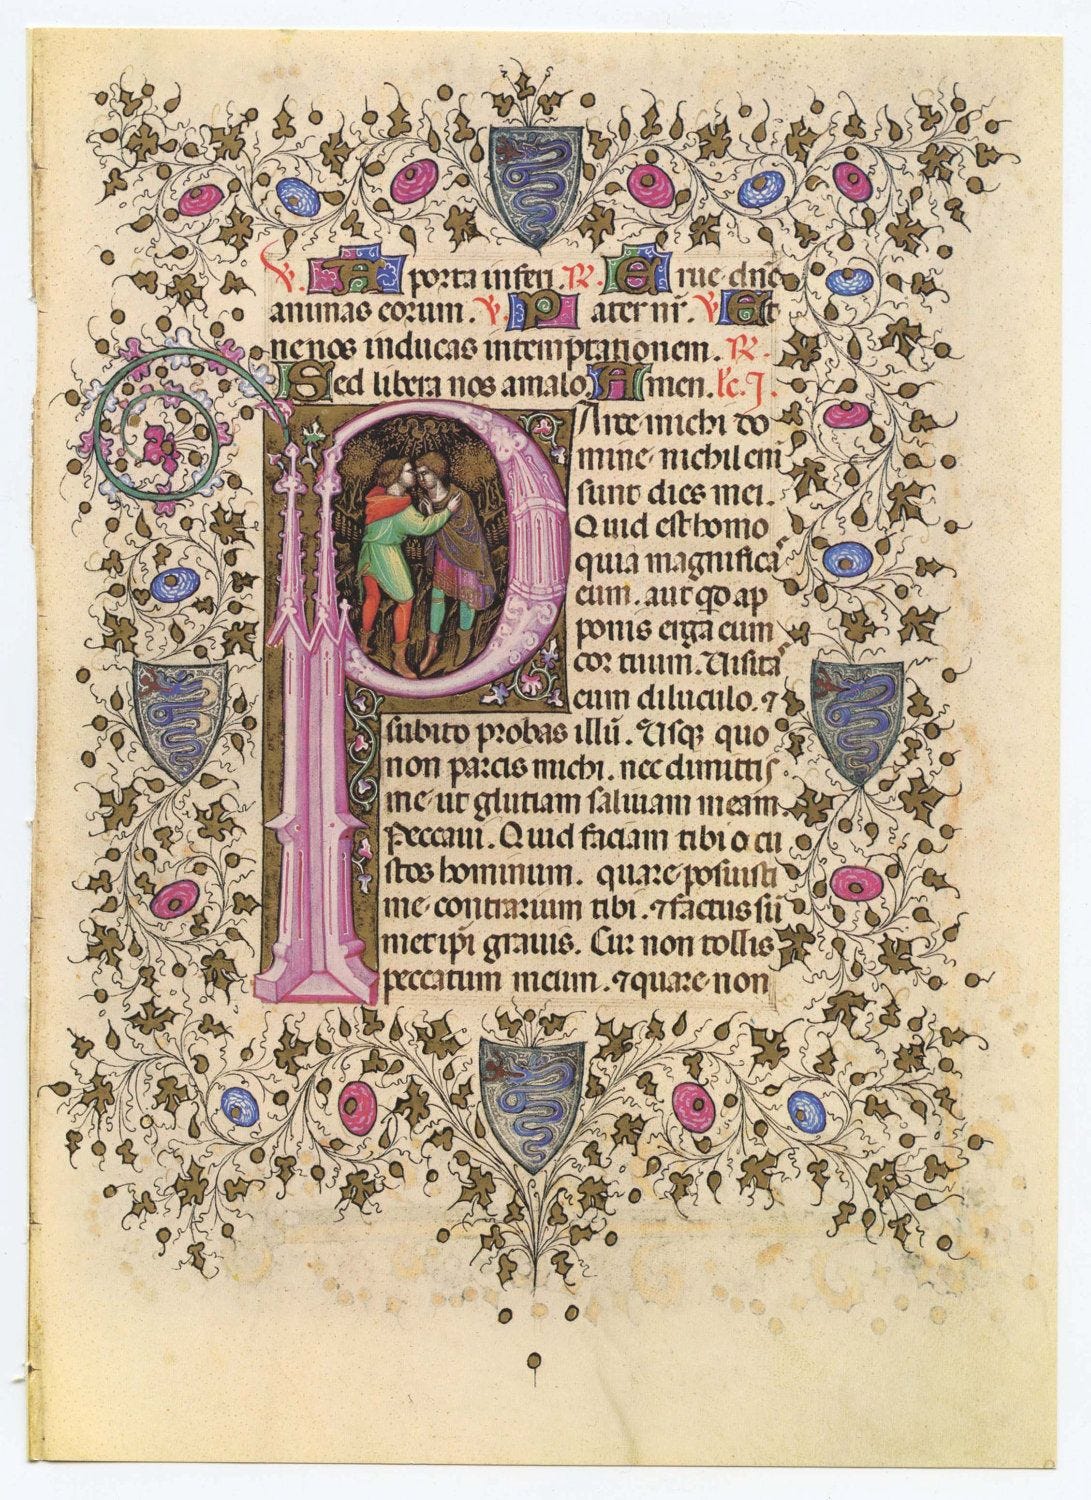 V. A porta inferi R. Erue dn̄e
animas eorum. V. Pater nr̄. V. Et
ne nos inducas in temptationem. R.
Sed libera nos amalo. Amen. lc. J.
Parce michi do
mine nichil eni
sunt dies mei.
Quid est homo
quia magnifica
eum. aut qd ap
ponis erga eum
cor tuum. Uisita
eum diluculo. ⁊
subito probas illū. Usqꝫ quo
non parcis michi. nec dimittis
me ut glutiam saliuam meam
Peccaui. Quid faciam tibi o cu
stos hominum. quare posuisti
me contrarium tibi. ⁊ factus sū
metipi grauis. Cur non tollis
peccatum meum. ⁊ quare non